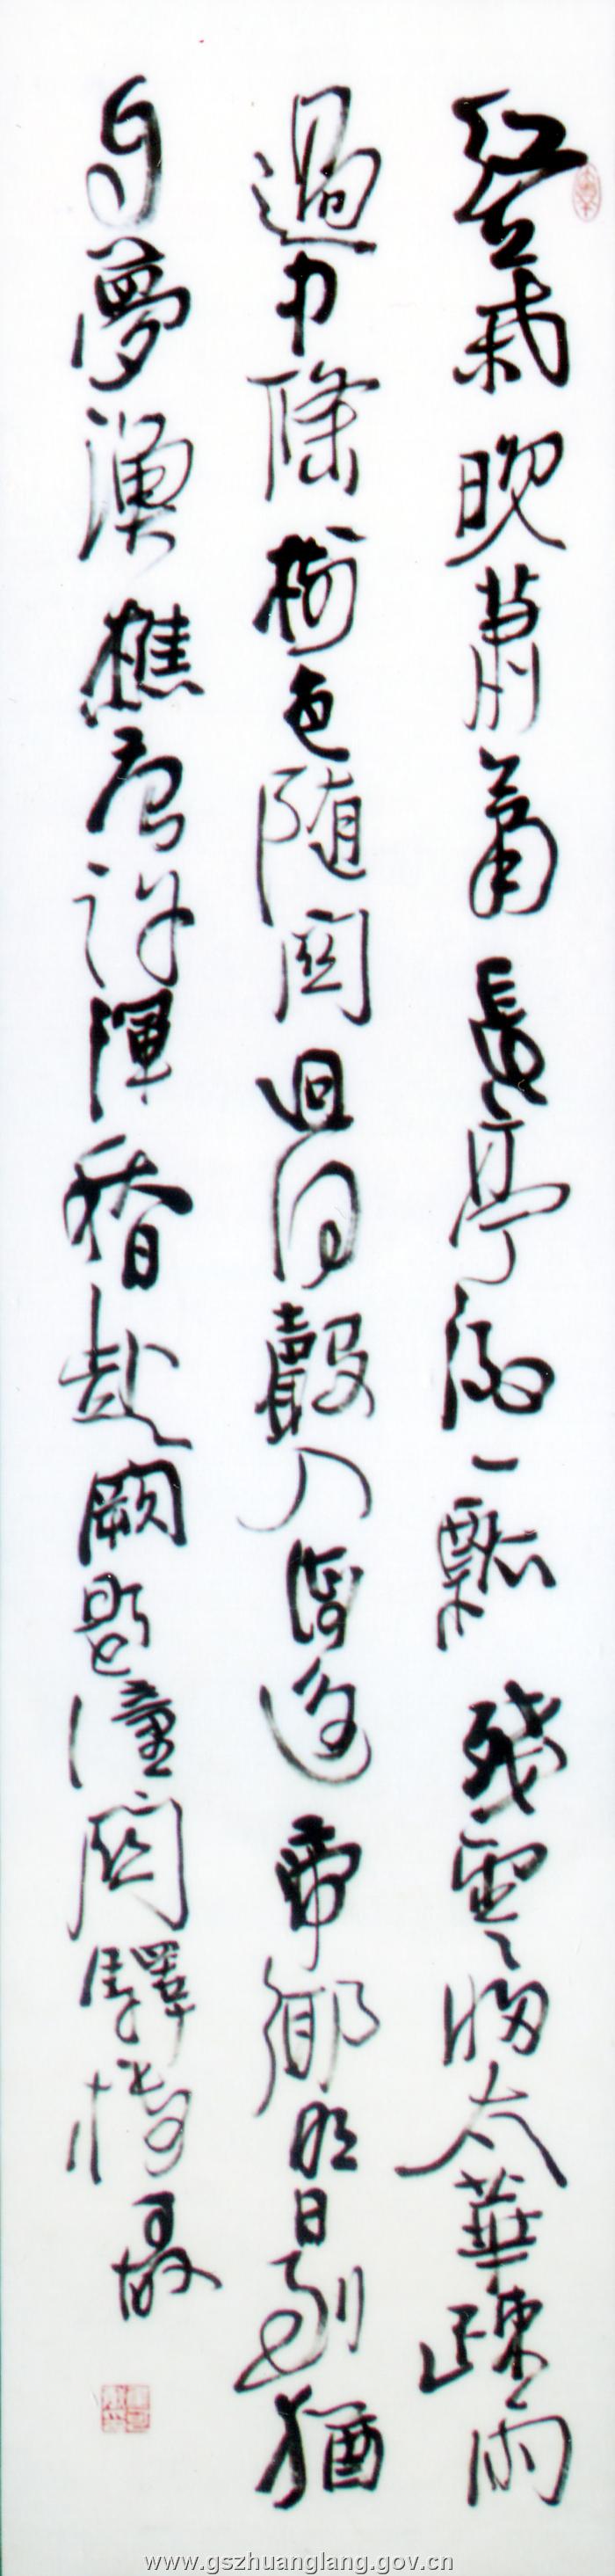 紅葉晚蕭蕭長亭酒一瓢殘雲歸太華疎雨
過中條樹色随関迥河聲入海遥帝鄉明日到猶
自夢漁樵唐許渾秋日赴闕題潼関驛樓
www.gszhuanglang.gov.cn